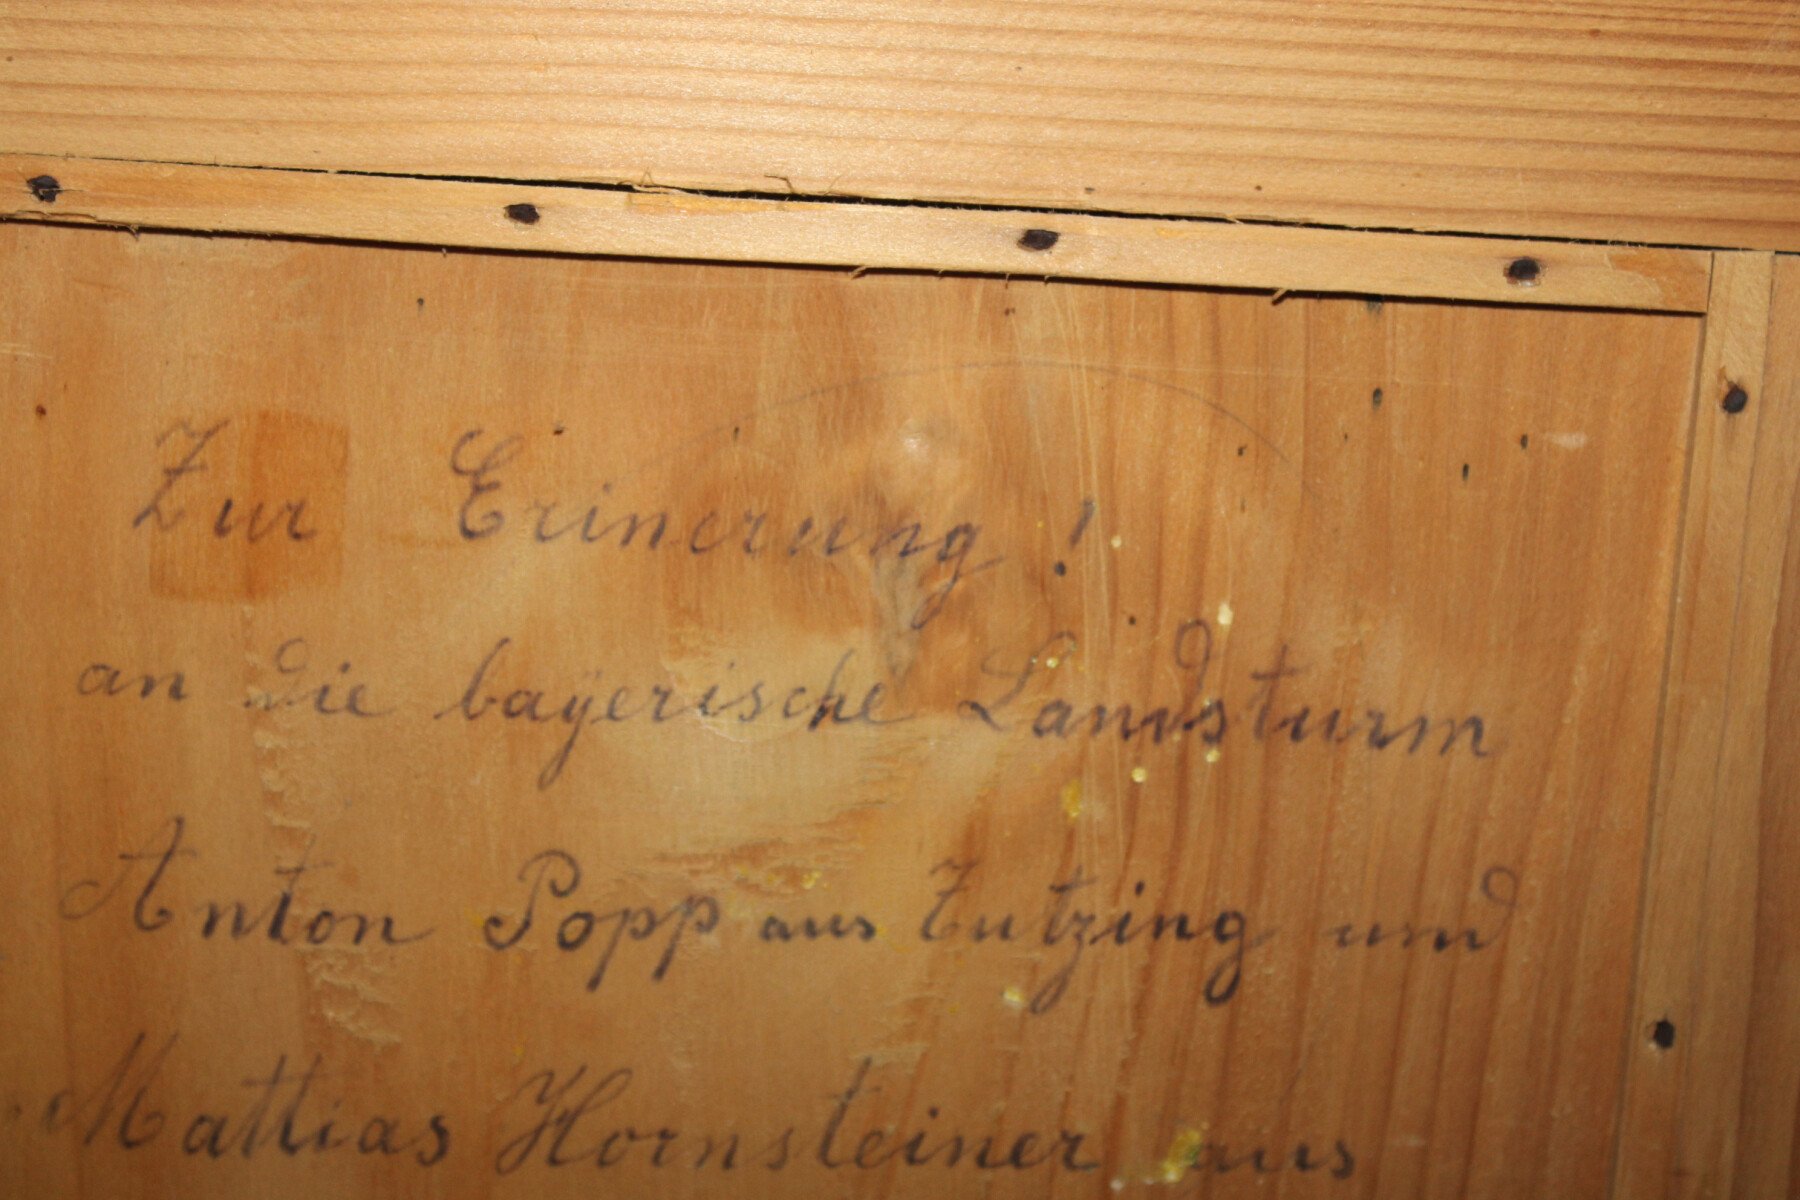 Zur Erinerung!
an die bayerische Landsturm
Anton Popp aus Tutzing und
Mattias Hornsteiner aus